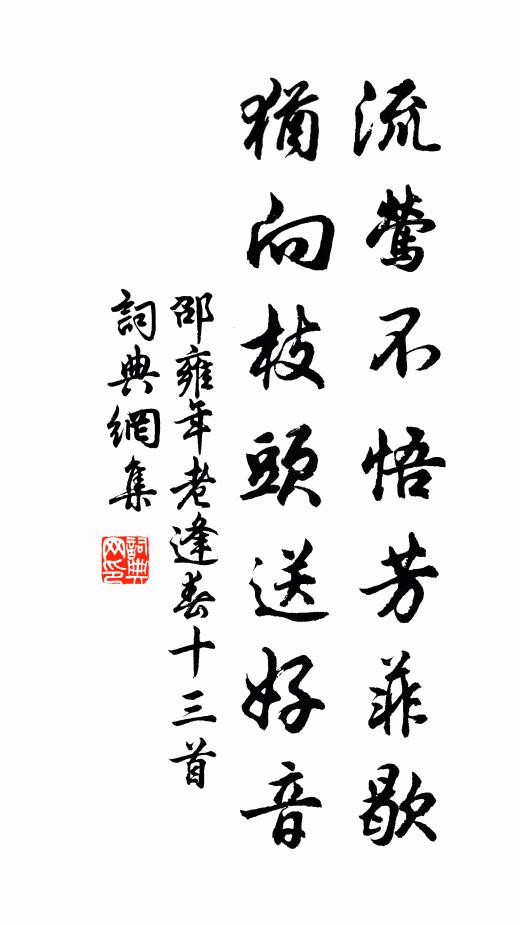 流鶯不悟芳菲歇
猶向枝頭送好音
邵雍年老逢春十三首
詞典網集
詞典网印